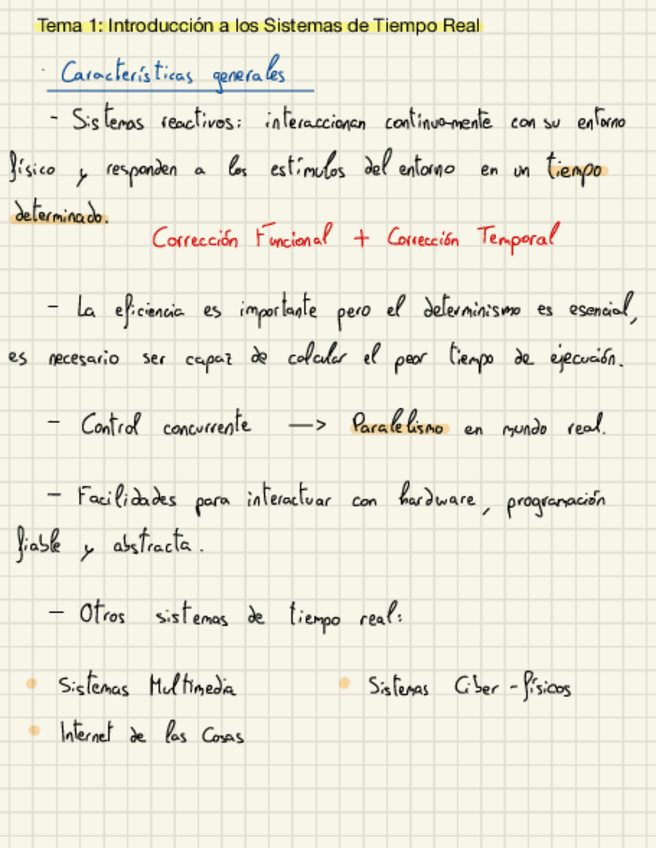 Tema 1: Introducción a los Sistemas de Tiempo Real
· Características generales
- Sistemas reactivos: interaccionan continuamente con su entorno
físico y responden a los estímulos del entorno en un tiempo
determinado.
Corrección Funcional + Corrección Temporal
- La eficiencia es importante pero el determinismo es esencial,
es necesario ser capaz de calcular el peor tiempo de ejecución.
- Control concurrente —> Paralelismo en mundo real.
- Facilidades para interactuar con hardware, programación
fiable y abstracta.
- Otros sistemas de tiempo real:
• Sistemas Multimedia • Sistemas Ciber-físicos
• Internet de las Cosas